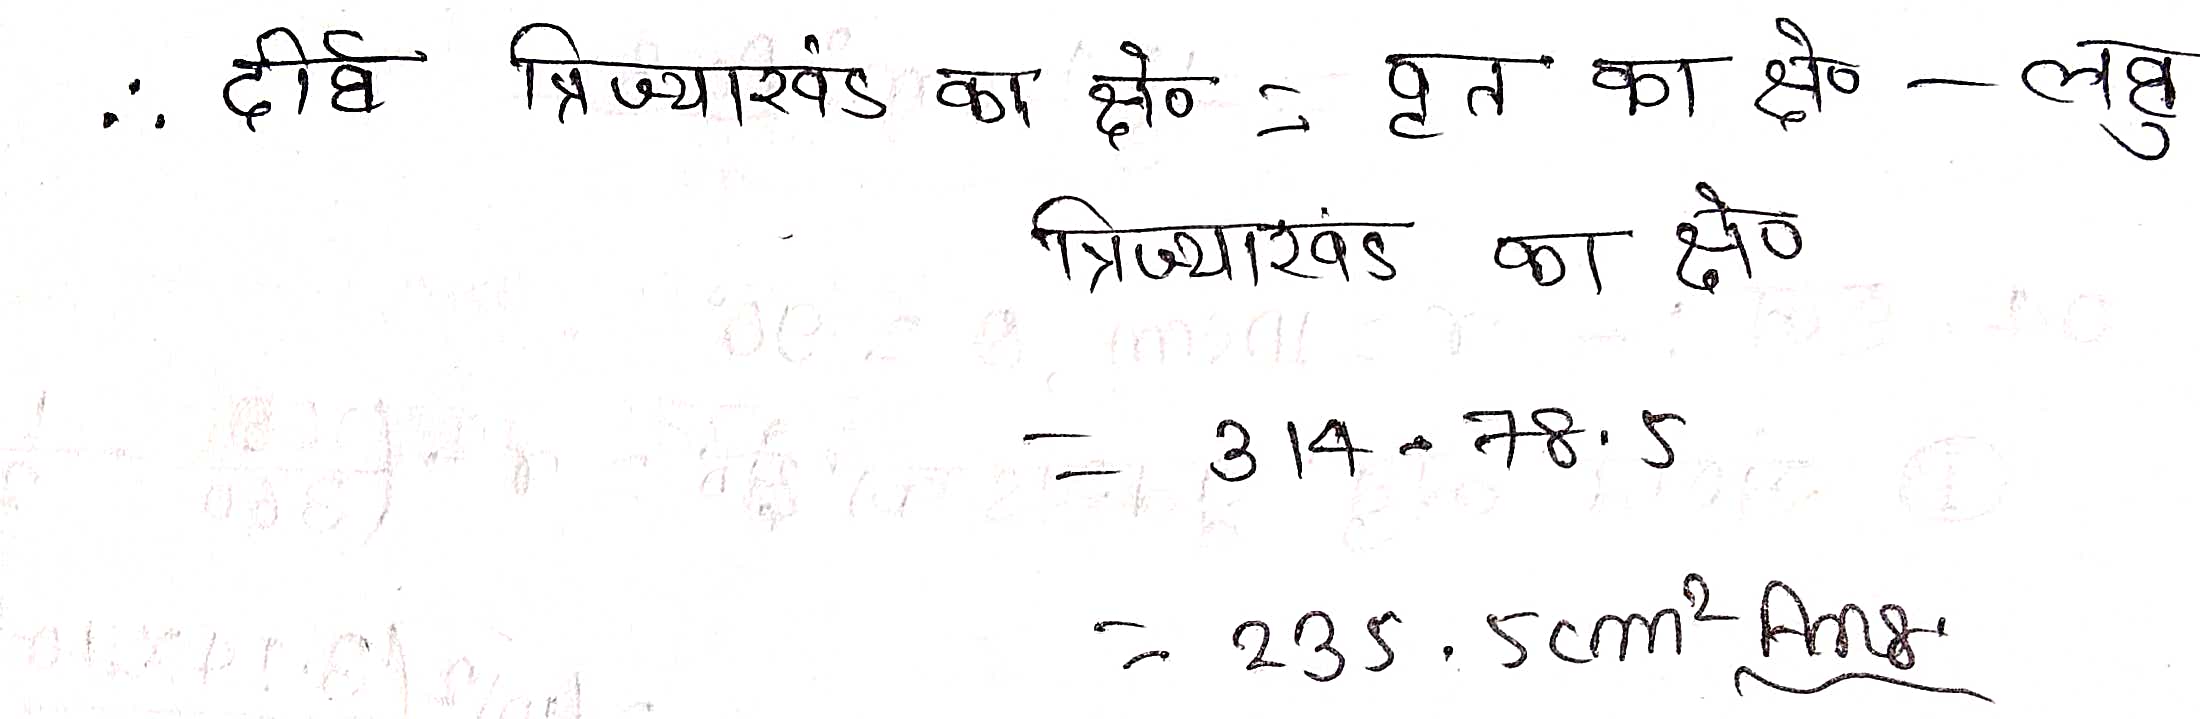 ∴ दीर्घ त्रिज्याखंड का क्षे० = वृत का क्षे० - लघु
त्रिज्याखंड का क्षे०
= 314 - 78.5
= 235.5cm² Ans.